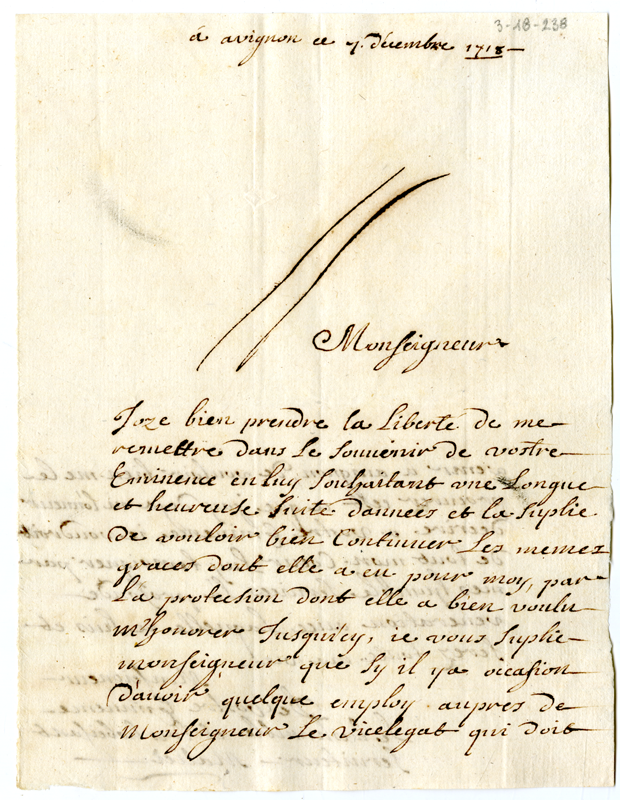 3-18-238
á avignon ce 7. décembre 1718
Monseigneur
J'oze bien prendre la Liberté de me
remettre dans Le souvenir de vostre
Eminence en luy souhaittant vne Longue
et heureuse suite dannées et la suplie
de vouloir bien Continuer Les memes
graces dont elle a eu pour moy, par
La protection dont elle a bien voulu
m'honorer Jusqu'icy, ie vous suplie
monseigneur que sy il ya occasion
d'auoir quelque employ aupres de
Monseigneur Le vicelegat qui doit